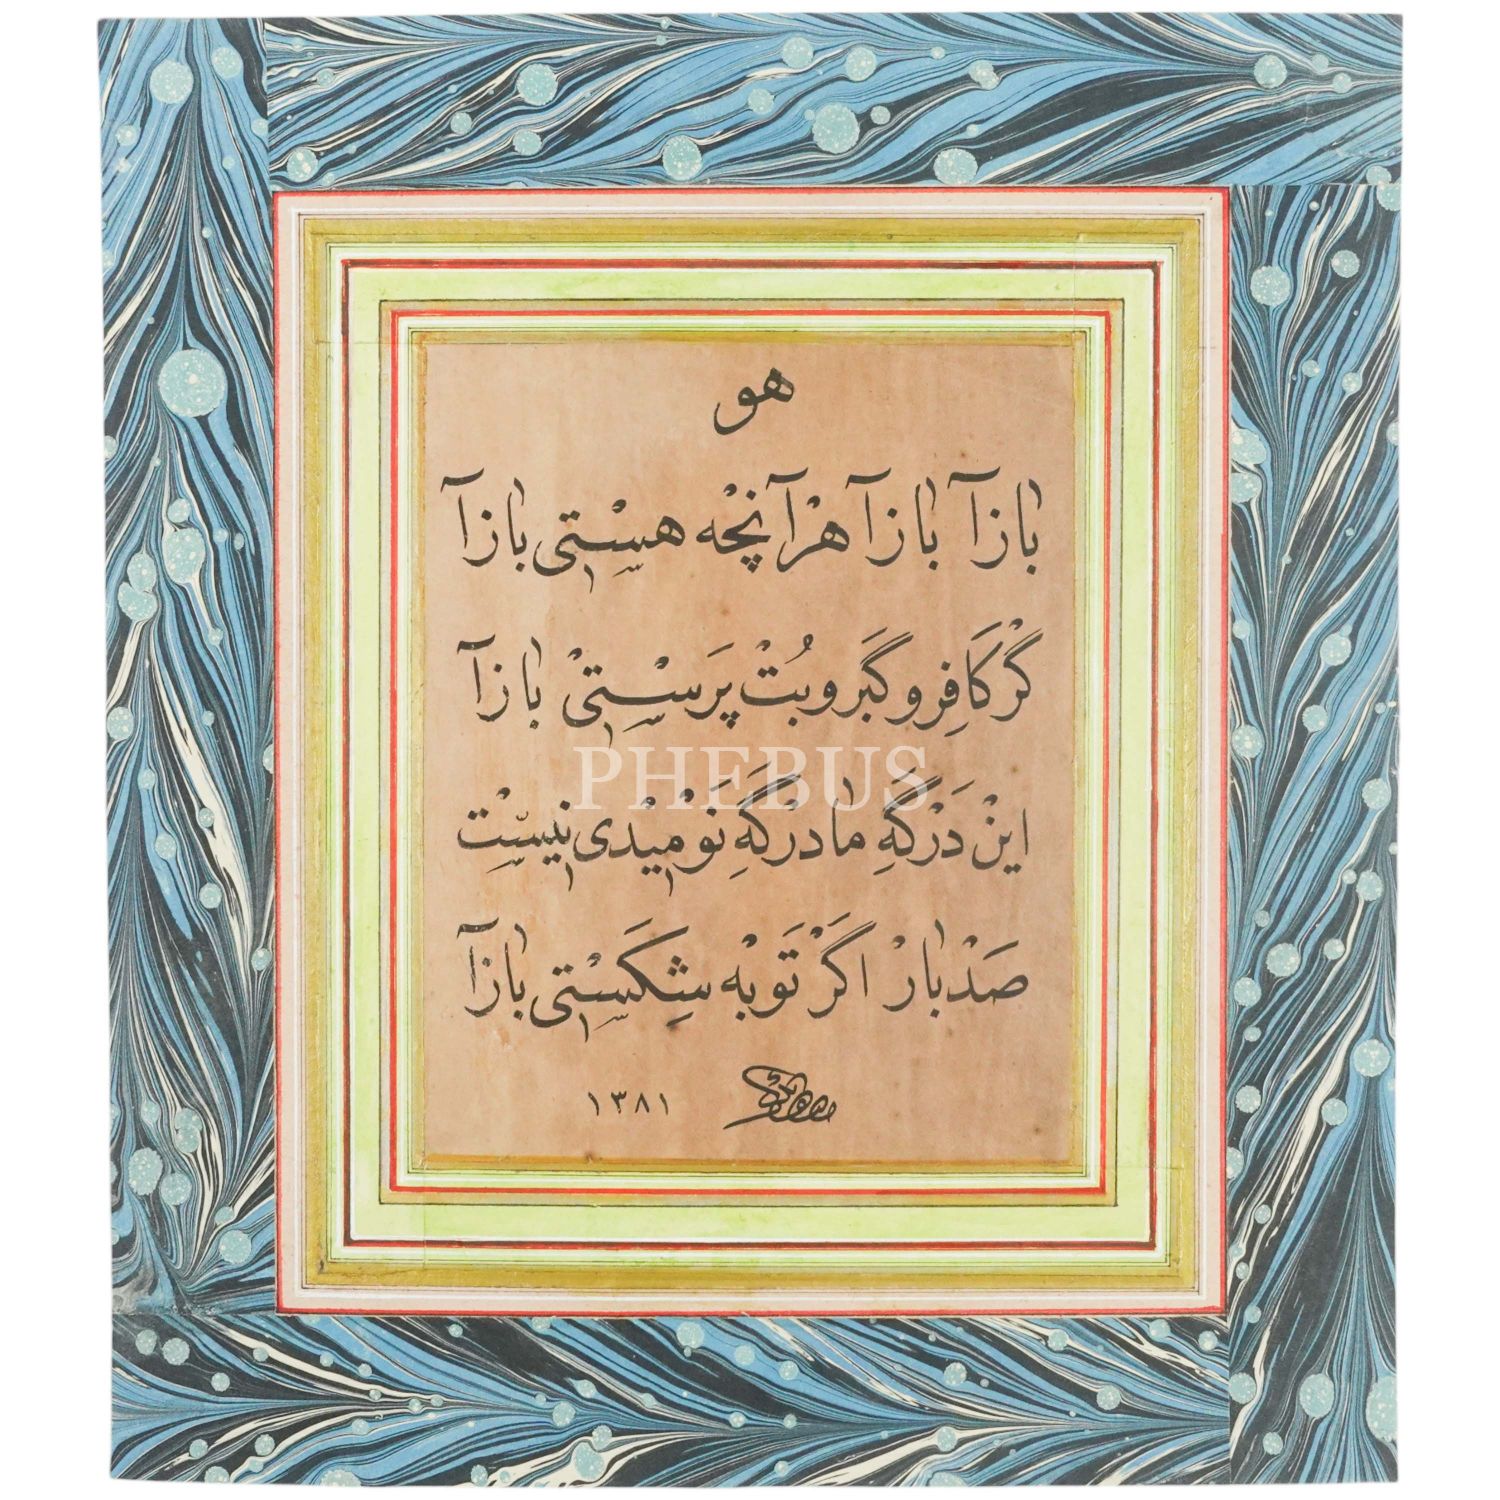 هو
بازآ بازآ هر آنچه هستی بازآ
گر کافر و گبر و بت پرستی بازآ
PHEBUS
این درگه ما درگه نومیدی نیست
صد بار اگر توبه شکستی بازآ
١٣٨١